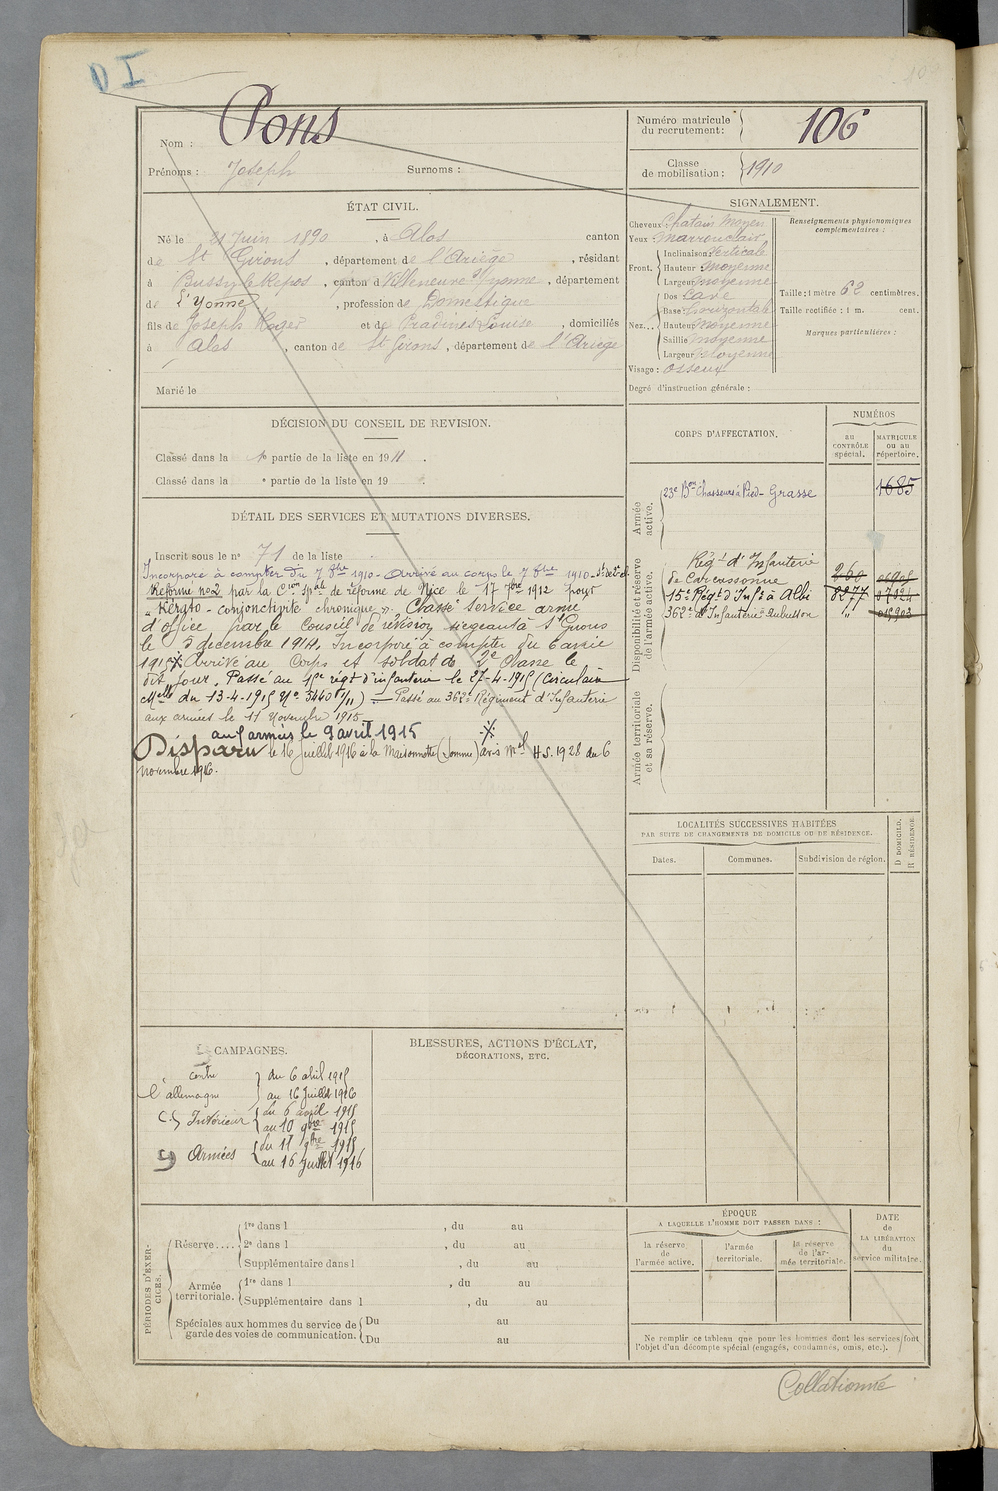 D I
Nom : Pons
Prénoms : Joseph Surnoms :
Numéro matricule du recrutement : 106
Classe de mobilisation : 1910
ÉTAT CIVIL.
Né le 21 Juin 1890, à Alos canton
de St Girons, département de l'Ariège, résidant
à Bussy le Repos, canton d Villeneuve s/ Yonne, département
de L'Yonne, profession de Domestique
fils de Joseph Roger et de Pradines Louise, domiciliés
à Alos, canton de St Girons, département de l'Ariège
Marié le
SIGNALEMENT.
Cheveux Chatain Moyen
Yeux Marron clair
Front. Inclinaison Verticale
Hauteur Moyenne
Largeur Moyenne
Nez... Dos Cave
Base Horizontale
Hauteur Moyenne
Saillie Moyenne
Largeur Moyenne
Visage : osseux
Renseignements physionomiques complémentaires :
Taille : 1 mètre 62 centimètres.
Taille rectifiée : 1 m. cent.
Marques particulières :
Degré d'instruction générale :
DÉCISION DU CONSEIL DE REVISION.
Classé dans la 1e partie de la liste en 1911.
Classé dans la e partie de la liste en 19 .
DÉTAIL DES SERVICES ET MUTATIONS DIVERSES.
Inscrit sous le n° 71 de la liste
Incorporé à compter du 7 8bre 1910 - Arrivé au corps le 7 8bre 1910 - St de 2e cl
Réformé no 2 par la Con spale de réforme de Nice le 17 7bre 1912 pour
"Kérato-conjonctivite chronique". Classé Service armé
d'office par le Conseil de révision siégeant à St Girons
le 5 décembre 1914. Incorporé à compter du 6 avril
1915 Arrivé au Corps et soldat de 2e Classe le
dit jour. Passé au 15e régt d'infanterie le 27-4-1915 (Circulaire
Melle du 13-4-1915 No 5440 1/11) Passé au 362e Régiment d'Infanterie
aux armées le 11 Novembre 1915
aux armées le 9 avril 1915
Disparu le 16 Juillet 1916 à la Maisonnette (Somme) avis Mel HS. 1928 du 6
novembre 1916.
CORPS D'AFFECTATION.
NUMÉROS
au CONTRÔLE spécial.
MATRICULE ou au répertoire.
Armée active.
23e Bon Chasseurs à Pied - Grasse 1685
Disponibilité et réserve de l'armée active.
Régt d'Infanterie
de Carcassonne 260
15e Régt d'Infie à Albi 8277
362e d'Infanterie Aubusson "
Armée territoriale et sa réserve.
LOCALITÉS SUCCESSIVES HABITÉES
PAR SUITE DE CHANGEMENTS DE DOMICILE OU DE RÉSIDENCE.
Dates. Communes. Subdivision de région.
D DOMICILE.
R RÉSIDENCE
CAMPAGNES.
contre l'allemagne du 6 avril 1915
au 16 Juillet 1916
C.S Intérieur du 6 avril 1915
au 10 9bre 1915
Armées du 11 9bre 1915
au 16 Juillet 1916
BLESSURES, ACTIONS D'ÉCLAT,
DÉCORATIONS, ETC.
PÉRIODES D'EXERCICES.
Réserve.... 1re dans l , du au
2e dans l , du au
Supplémentaire dans l , du au
Armée territoriale. 1re dans l , du au
Supplémentaire dans l , du au
Spéciales aux hommes du service de garde des voies de communication. Du au
Du au
ÉPOQUE
A LAQUELLE L'HOMME DOIT PASSER DANS :
la réserve de l'armée active.
l'armée territoriale.
la réserve de l'armée territoriale.
DATE de LA LIBÉRATION du service militaire.
Ne remplir ce tableau que pour les hommes dont les services font
l'objet d'un décompte spécial (engagés, condamnés, omis, etc.).
Collationné